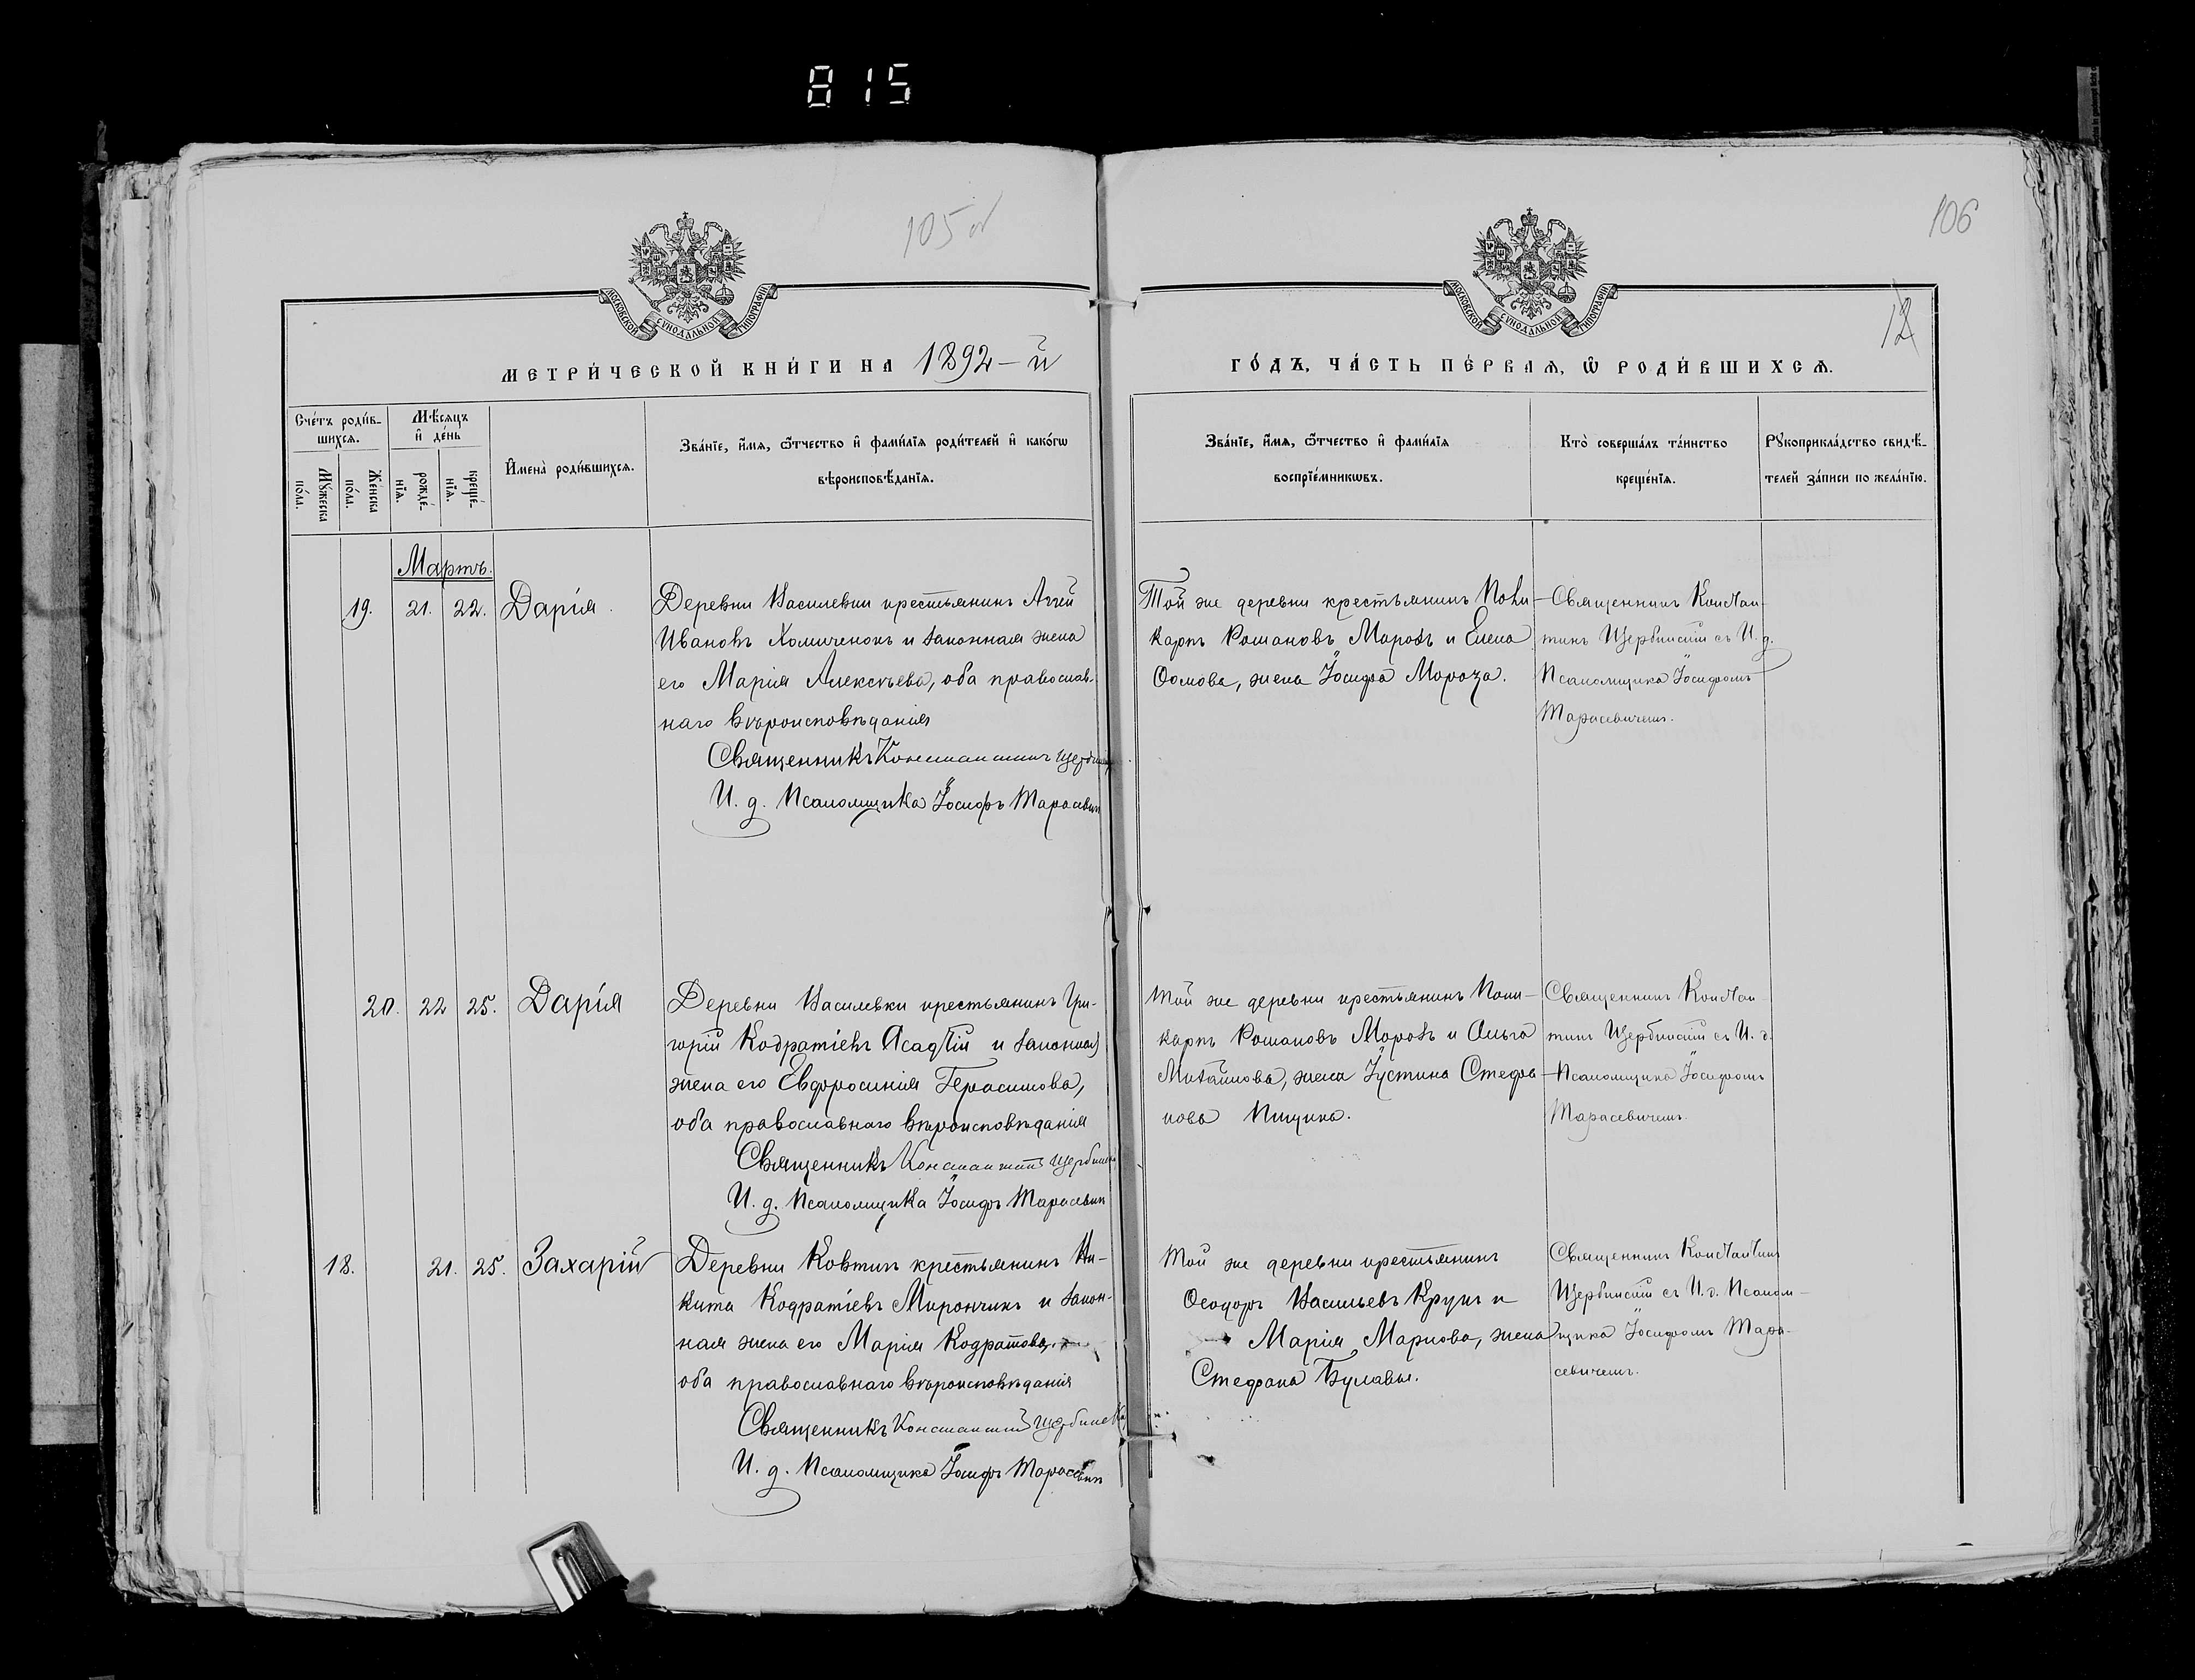 815
105 об
106
12
МОСКОВСКОЙ СУНОДАЛЬНОЙ ТИПОГРАФІИ
МОСКОВСКОЙ СУНОДАЛЬНОЙ ТИПОГРАФІИ
МЕТРИ́ЧЕСКОЙ КНИ́ГИ НА 1892-й
ГО́ДЪ, ЧА́СТЬ ПЕ́РВАѦ, Ѡ РОДИ́ВШИХСѦ.
Сче́тъ роди́в-
шихсѧ.
Мѣ́сѧцъ
и҆ де́нь
Му́жеска
по́ла.
Же́нска
по́ла.
рожде́-
нїѧ.
креще́-
нїѧ.
И҆мена̀ роди́вшихсѧ.
Зва́нїе, и҆́мѧ, ѻ҆́тчество и҆ фами́лїѧ роди́телей и҆ како́гѡ
вѣроисповѣ́данїѧ.
Зва́нїе, и҆́мѧ, ѻ҆́тчество и҆ фами́лїѧ
воспрїе́мникѡвъ.
Кто̀ соверша́лъ та́инство
креще́нїѧ.
Рꙋкоприкла́дство свидѣ́-
телей за́писи по жела́нїю.
Мартъ.
19. 21. 22. Дарія.
Деревни Василевки крестьянинъ Аггей
Ивановъ Хомиченокъ и законная жена
его Марія Алексѣева, оба православ-
наго вѣроисповѣданія
Священникъ Константинъ Щербинскій
И. д. Псаломщика Іосифъ Тарасевич
Той же деревни крестьянинъ Поли-
карпъ Романовъ Морозъ и Елена
Ѳомова, жена Іосифа Мороза.
Священникъ Констан-
тинъ Щербинскій съ И. д.
Псаломщика Іосифомъ
Тарасевичемъ.
20. 22 25. Дарія
Деревни Василевки крестьянинъ Гри-
горій Кодратіевъ Асадчій и законная
жена его Евфросинія Герасимова,
оба православнаго вѣроисповѣданія
Священникъ Константинъ Щербинск
И. д. Псаломщика Іосифъ Тарасевич
Той же деревни крестьянинъ Поли-
карпъ Романовъ Морозъ и Ольга
Михайлова, жена Іустина Стефа-
нова Пищика.
Священникъ Констан-
тинъ Щербинскій съ И. д.
Псаломщика Іосифомъ
Тарасевичемъ.
18. 21. 25. Захарій
Деревни Ковтип крестьянинъ Ни-
кита Кодратіевъ Мирончикъ и закон-
ная жена его Марія Кодратова,
оба православнаго вѣроисповѣданія
Священникъ Константинъ Щербинск
И. д. Псаломщика Іосифъ Тарасевич
Той же деревни крестьянинъ
Ѳеодоръ Васильевъ Крукъ и
Марія Маркова, жена
Стефана Булавы.
Священникъ Константинъ
Щербинскій съ И. д. Псалом-
щика Іосифомъ Тара-
севичемъ.